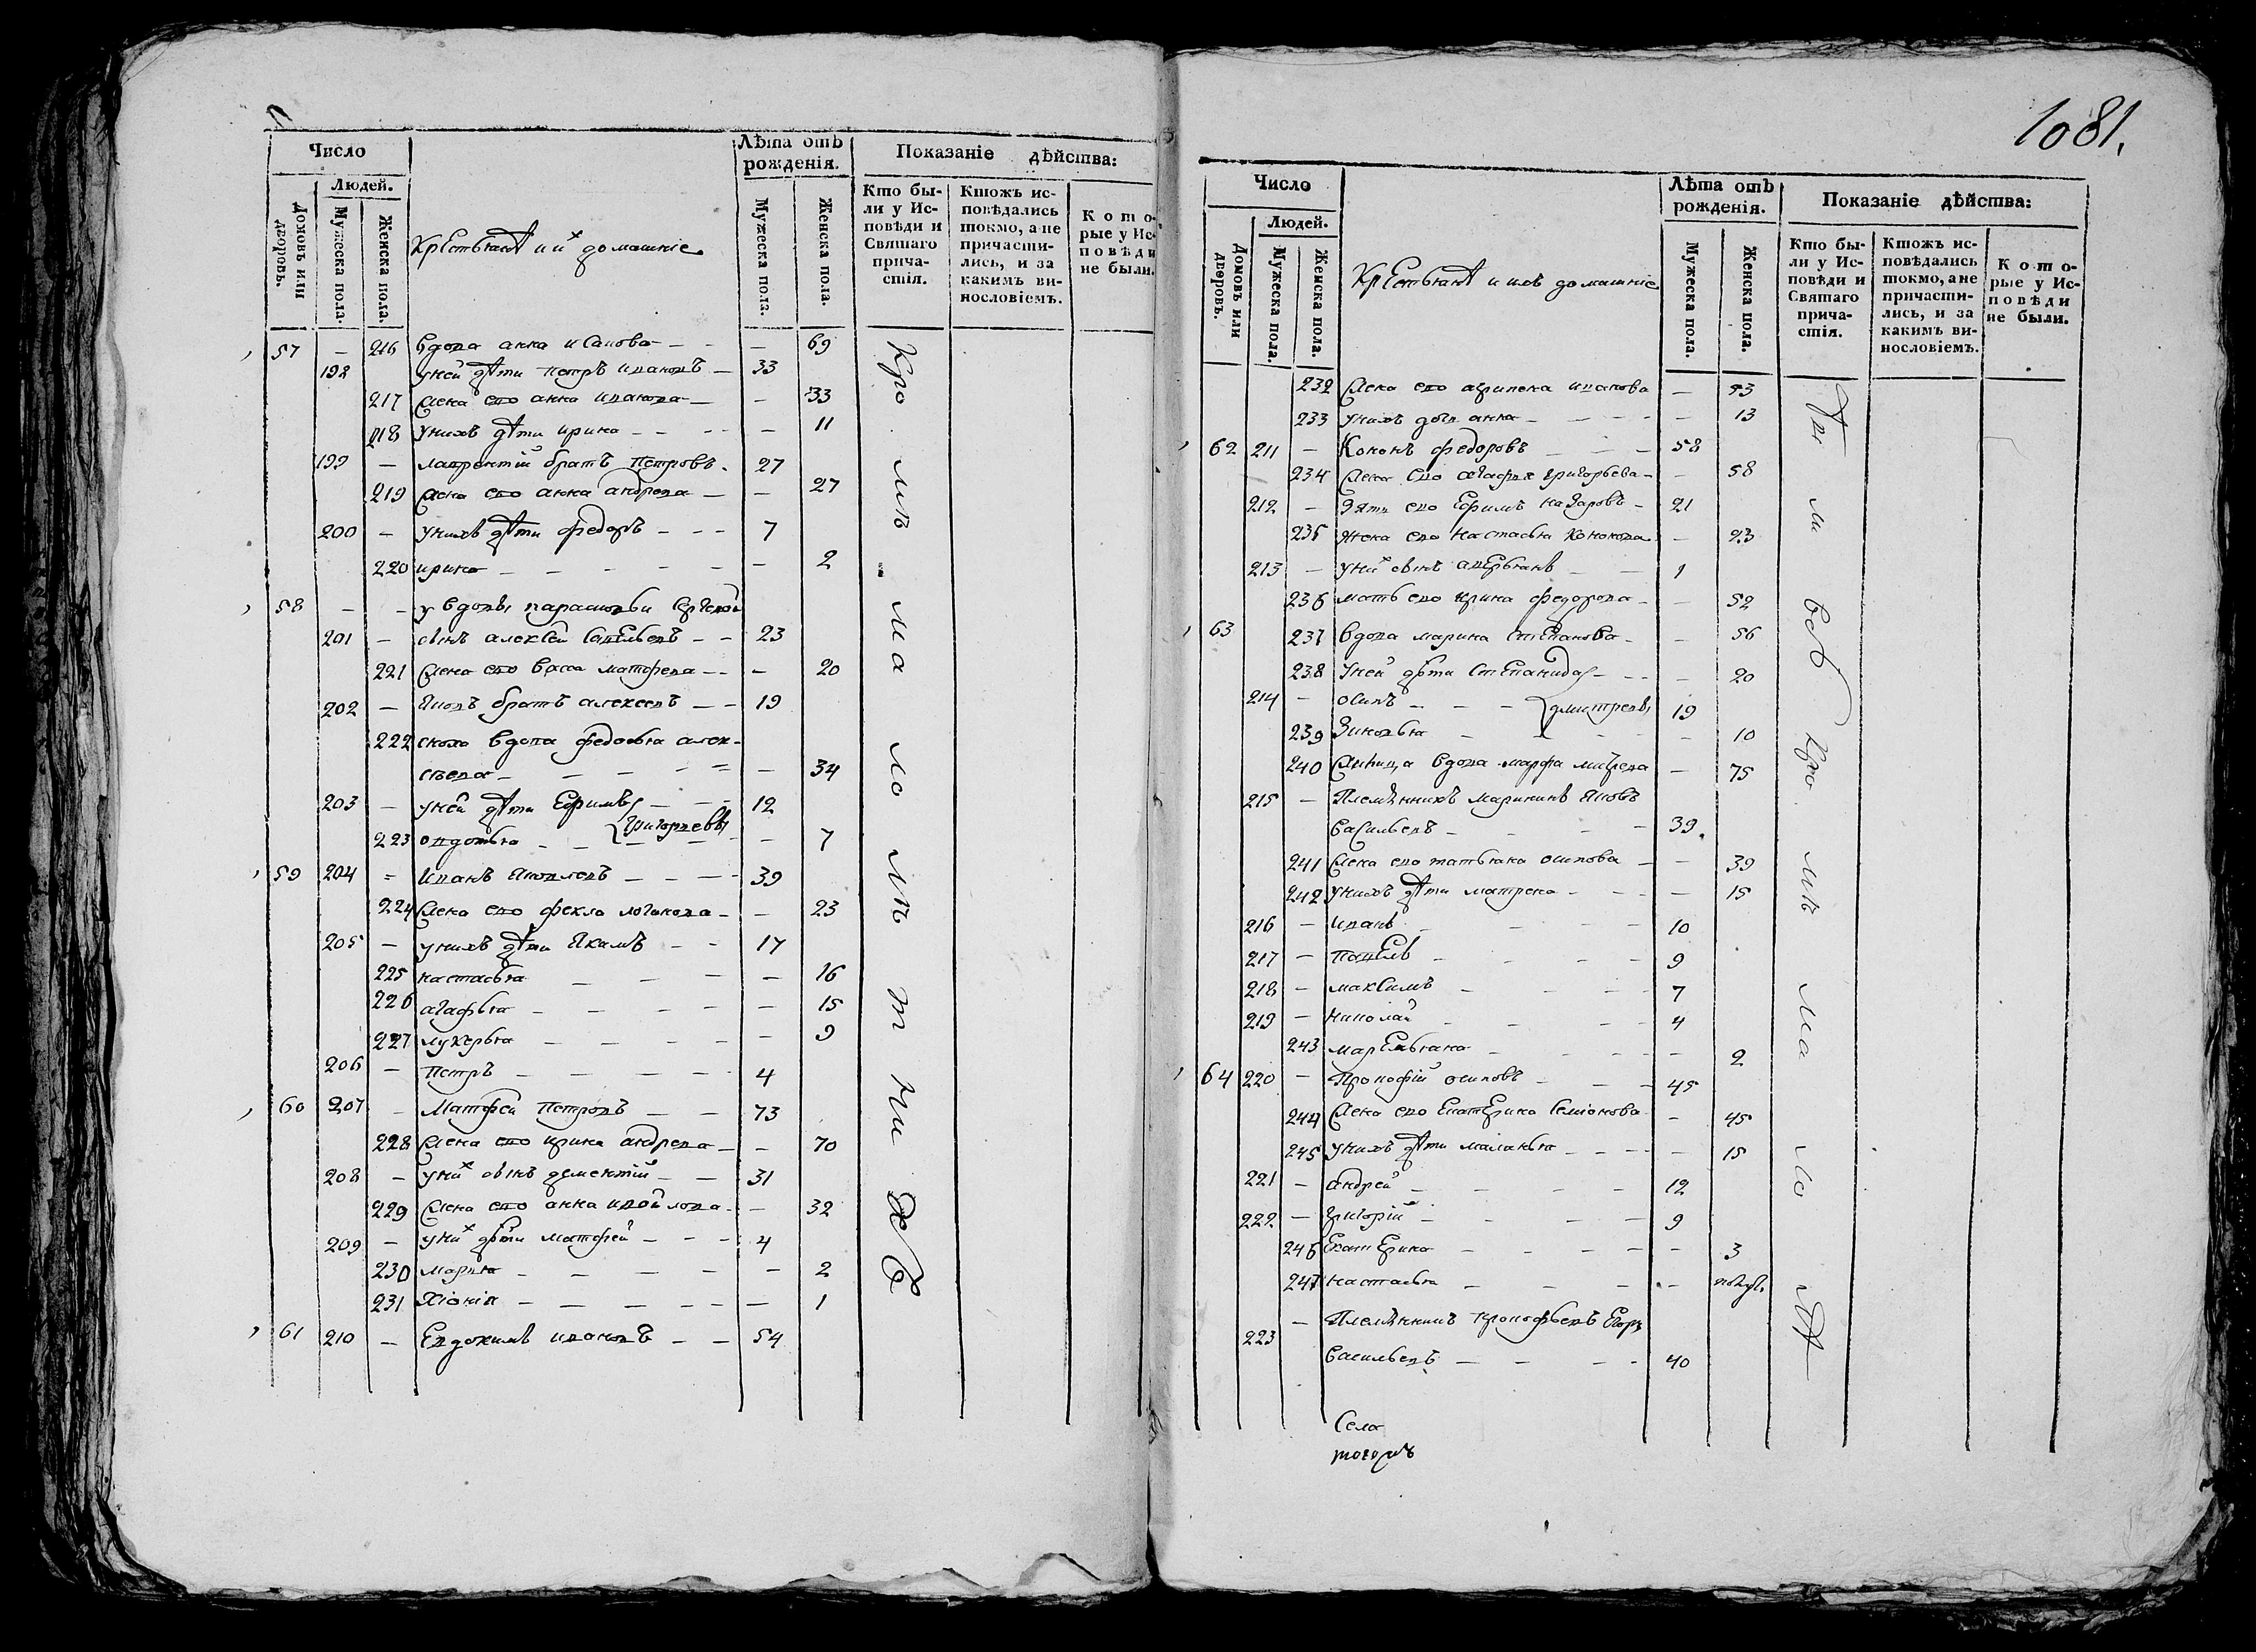 1081.
Число
Людей.
Домовъ или дворовъ.
Мужеска пола.
Женска пола.
Крестьяне и их домашніе
Лѣта отъ рожденія.
Мужеска пола.
Женска пола.
Показаніе дѣйства:
Кто бы-
ли у Ис-
повѣди и
Святаго
прича-
стія.
Ктожъ ис-
повѣдались
токмо, а не
причасти-
лись, и за
какимъ ви-
нословіемъ.
Кото-
рые у Ис-
повѣди
не были.
57 — 216 вдова анна исаиова — — — 69
198 у ней дѣти петръ ивановъ — 33
217 жена ево анна иванова — — 33
218 у нихъ дѣти ирина — — — — 11
199 — лаврентій братъ петровъ — 27
219 жена ево анна андреева — — 27
200 — у нихъ дѣти федоръ — — — 7
220 ирина — — — — — — 2
58 — — у вдовы парасковьи
201 — сынъ алексей савельевъ — — 23
221 жена ево васса матфеева — — — 20
202 — яковъ братъ алексеевъ — — 19
222 сноха вдова федосья алек-
сѣева — — — — — — 34
203 — у ней дѣти ефимъ — — — 12
григорьевы
223 овдотья — — — — — 7
59 204 = иванъ яковлевъ — — — — 39
224 жена ево фекла логинова — — 23
205 — у нихъ дѣти якимъ — — 17
225 настасья — — — — 16
226 агафья — — — — — 15
227 лукерья — — — — — 9
206 — петръ — — — — — 4
60 207 — матфей петровъ — — 73
228 жена ево ирина андреева — — 70
208 — у них сынъ дементій — — 31
229 жена ево анна — — 32
209 — у них дѣти матфей — — — 4
230 марья — — — — — 2
231 хіонія — — — — — — 1
61 210 — евдокимъ ивановъ — — 54
Кро мѣ ма ло лѣ тни хъ
Число
Людей.
Домовъ или дворовъ.
Мужеска пола.
Женска пола.
Крестьяне и ихъ домашніе
Лѣта отъ рожденія.
Мужеска пола.
Женска пола.
Показаніе дѣйства:
Кто бы-
ли у Ис-
повѣди и
Святаго
прича-
стія.
Ктожъ ис-
повѣдались
токмо, а не
причасти-
лись, и за
какимъ ви-
нословіемъ.
Кото-
рые у Ис-
повѣди
не были.
232 жена ево агрипена иванова — 53
233 у нихъ дочь анна — — — — — 13
62 211 — кононъ федоровъ — — — 58
234 жена ево агафья григорьева — — 58
212 — зять ево ефимъ назаровъ — 21
235 жена ево настасья кононова — 23
213 — у них сынъ аверьянъ — — 1
236 мать ево ирина федорова — — 52
63 237 вдова марина степанова — — 56
238 у ней дѣти степанида — — — 20
214 — осипъ — — — дмитревы 19
239 зиновья — — — — 10
240 вдова марфа — 75
215 — племянникъ марининъ яковъ
васильевъ — — — 39.
241 жена ево татьяна осипова — — 39
242 у нихъ дѣти матрена — — — — 15
216 — иванъ — — — — 10
217 — павелъ — — — — 9
218 — максимъ — — — — 7
219 — николай — — — — 4
243 маремьяна — — — — — 2
64 220 — прокофій осиповъ — — — 45
244 жена ево екатерина семіонова — 45
245 у нихъ дѣти маланья — — — — — 15
221 — андрей — — — — 12
222 — григорій — — — — 9
246 екатерина — — — — — 3
247 настасья — — — — — полуг.
— племянникъ прокофьевъ егоръ
223 васильевъ — — — — 40
всѣ кро мѣ ма ло лѣ
Села
тогожъ